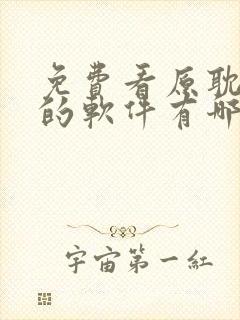 免費看原耽
的軟件有哪
宇宙第一紅